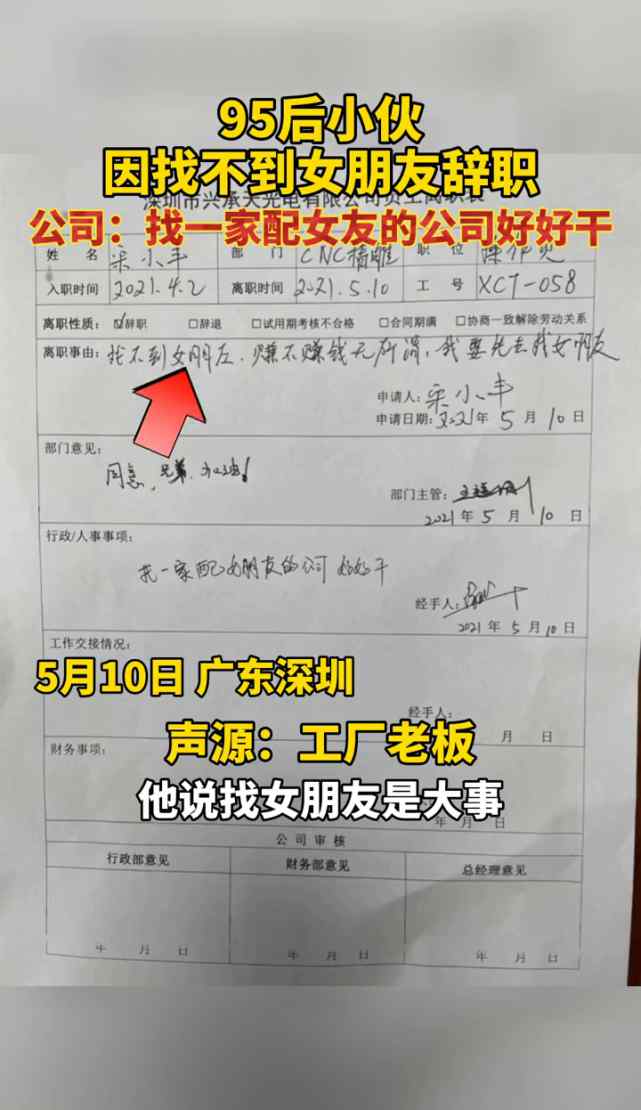 95后小伙
因找不到女朋友辞职
深圳市兴承天光电有限公司员工离职表
公司：找一家配女友的公司好好干
姓名 宋小丰 部门 CNC精雕 职位
入职时间 2021.4.2 离职时间 2021.5.10 工号 XCT-058
离职性质：☑辞职 □辞退 □试用期考核不合格 □合同期满 □协商一致解除劳动关系
离职事由：找不到女朋友，赚不赚钱无所谓，我要先去找女朋友
申请人：宋小丰
申请日期：2021年5月10日
部门意见：
同意，兄弟，加油！
部门主管：
2021年5月10日
行政/人事事项：
找一家配女朋友的公司 好好干
经手人：
2021年5月10日
工作交接情况：
5月10日 广东深圳
经手人：
月 日
声源：工厂老板
财务事项：
他说找女朋友是大事
年 月 日
公司审核
行政部意见 财务部意见 总经理意见
年 月 日 年 月 日 年 月 日